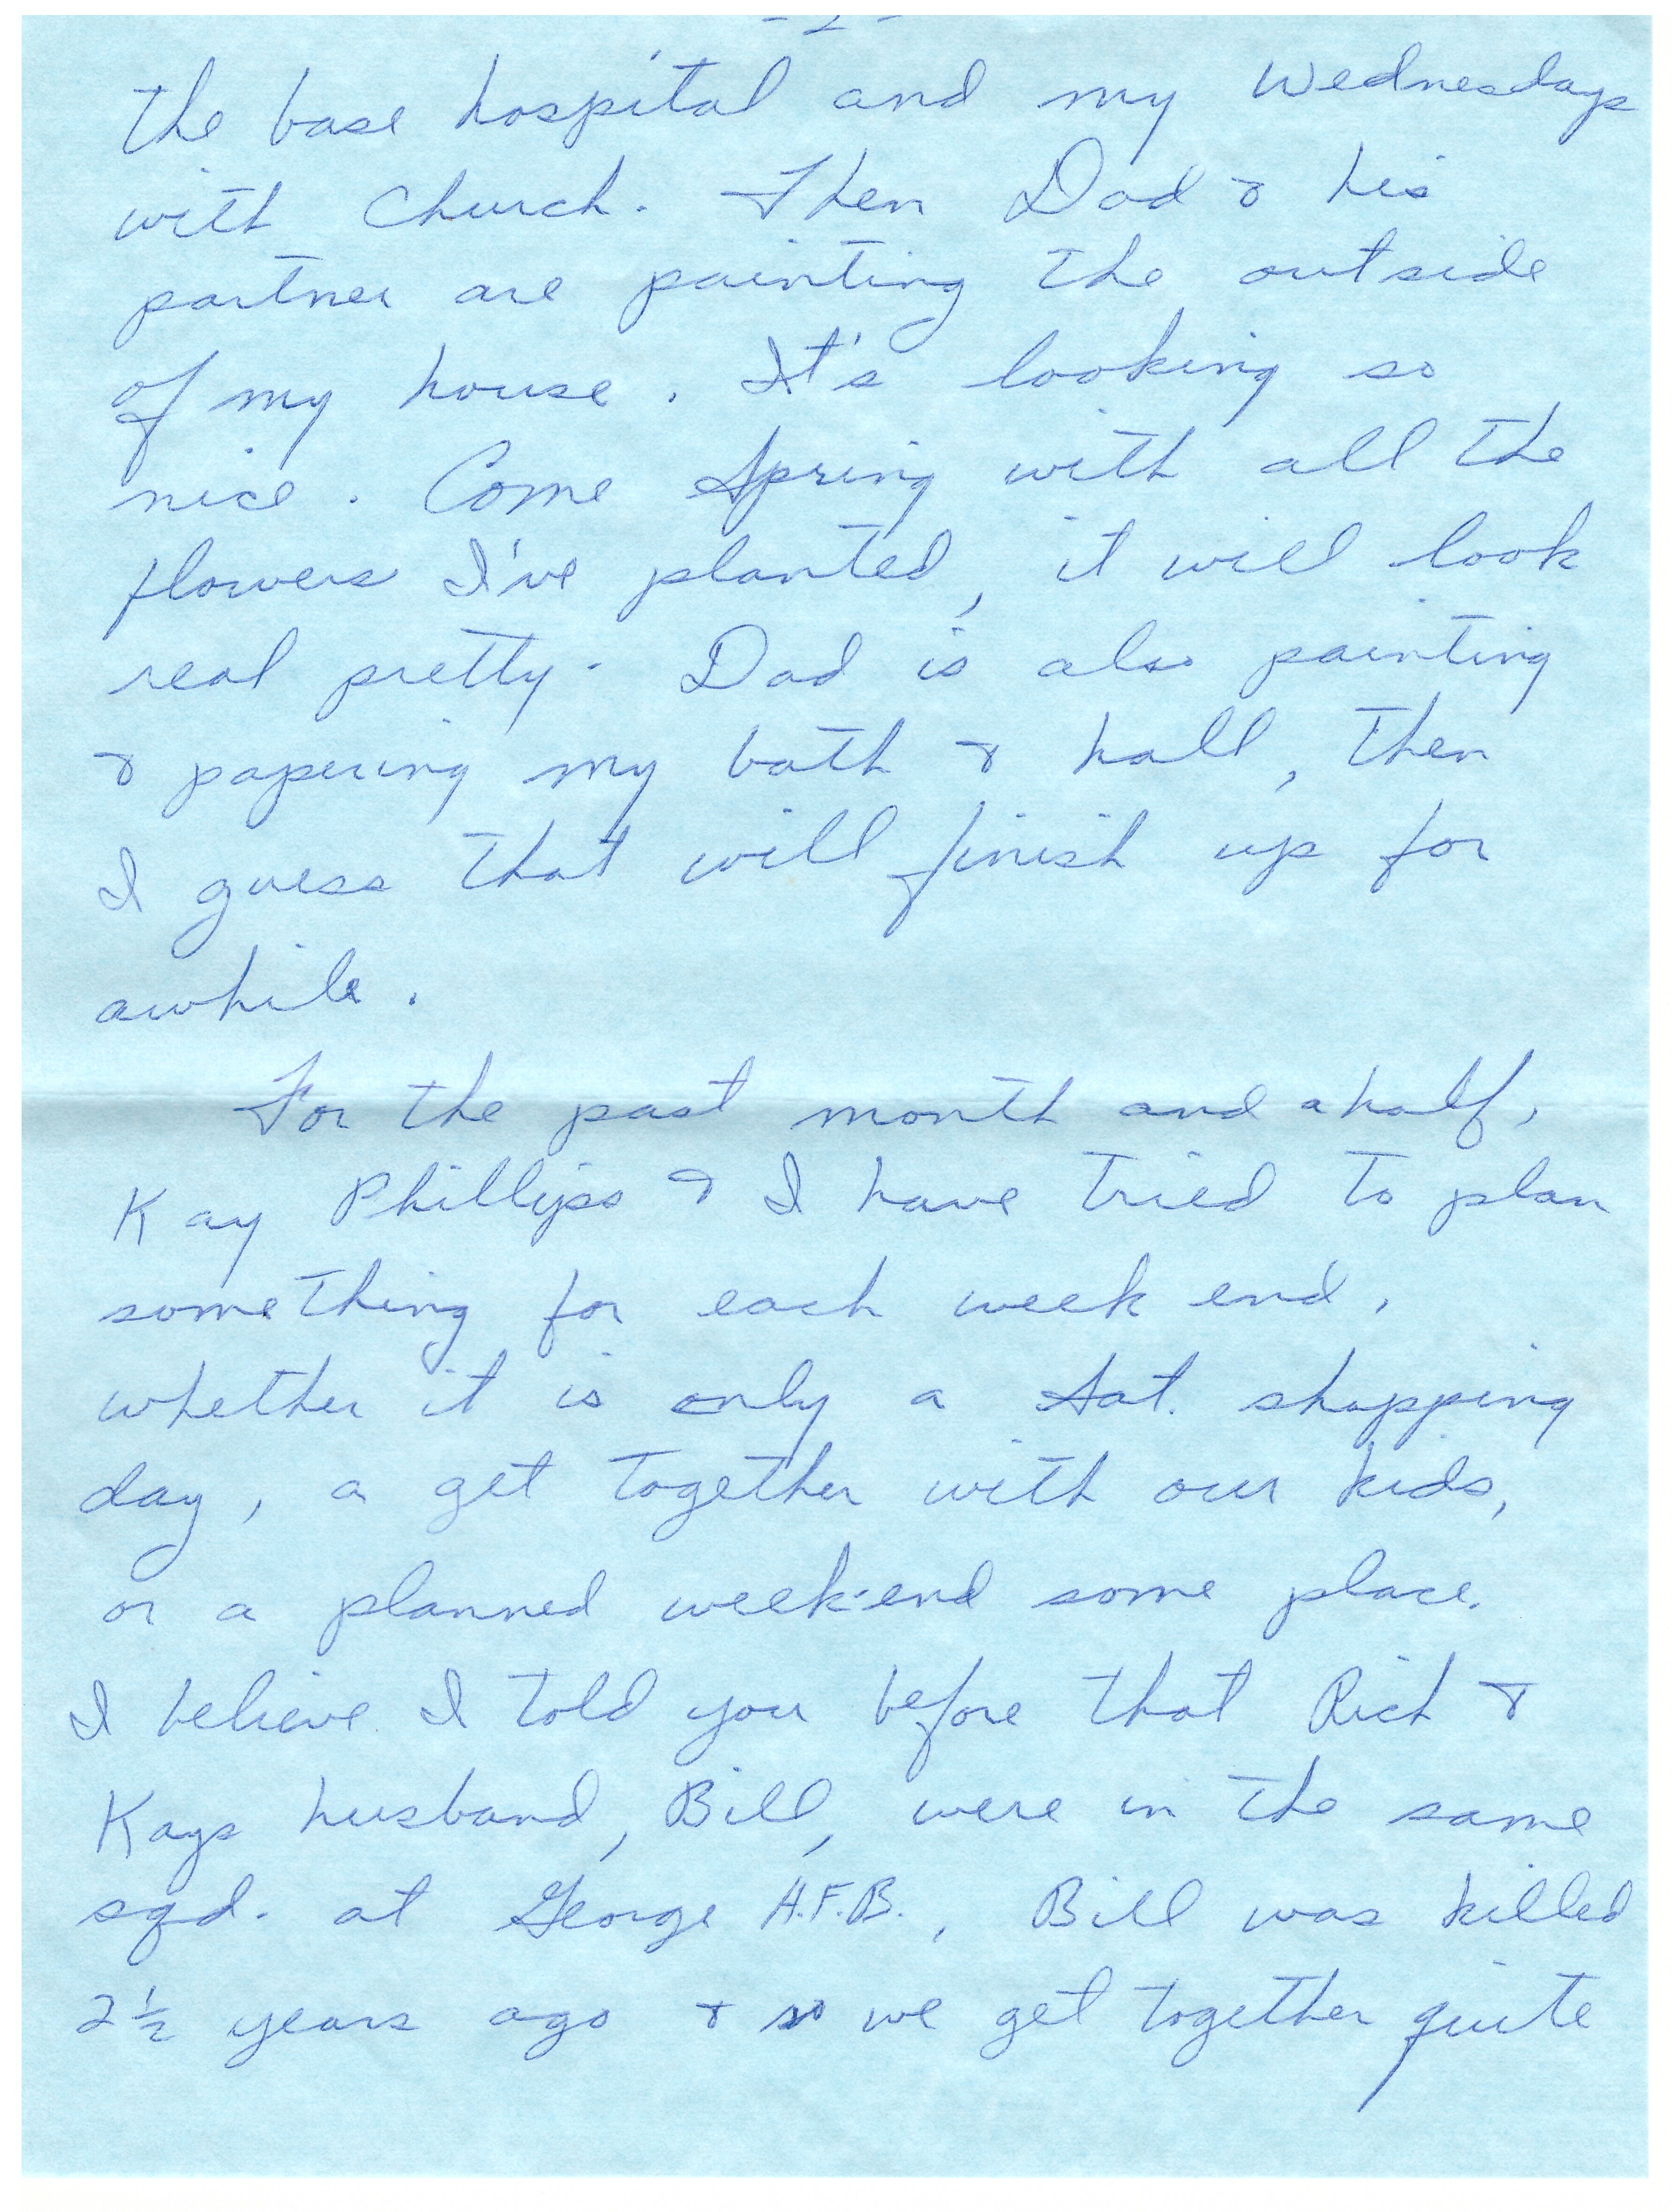 -2-
the base hospital and my Wednesdays
with Church. Then Dad & his
partner are painting the outside
of my house. It's looking so
nice. Come Spring with all the
flowers I've planted, it will look
real pretty. Dad is also painting
& papering my bath & hall, then
I guess that will finish up for
awhile.
For the past month and a half,
Kay Phillips & I have tried to plan
something for each week end,
whether it is only a Sat. shopping
day, a get together with our kids,
or a planned week-end some place.
I believe I told you before that Rich &
Kays husband, Bill, were in the same
sqd. at George A.F.B., Bill was killed
2½ years ago & so we get together quite